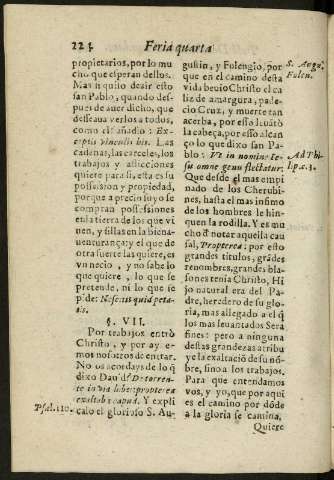 223
Feria quarta
propietarios, por lo mu
cho que esperan dellos.
Mas ni quiso dezir esto
san Pablo, quando des-
pues de auer dicho, que
desseaua verlos a todos,
como el: añadio: Ex-
ceptis vinculis his. Las
cadenas, las carceles, los
trabajos y aflicciones
quiere para si, esta es su
possession y propiedad,
porque a precio suyo se
compran possessiones
en la tierra de los que vi
uen, y sillas en la biena-
uenturança: y el que de
otra suerte las quiere, es
vn necio, y no sabe lo
que quiere, lo que se
pretende, ni lo que se
pide: Nescitis quid peta-
tis.
§. VII.
Por trabajos entrò
Christo, y por ay e-
mos nosotros de entrar.
No os acordays de lo q̃
dixo Dauid? De torren-
te in via bibet propterea
exaltabit caput. Y expli
calo el glorioso S. Au-
Psal. 110.
gustin, y Folengio, por
que en el camino desta
vida beuio Christo el ca
liz de amargura, pade-
cio Cruz, y muerte tan
acerba, por esso leuãtò
la cabeça, por esso alcan
ço lo que dixo san Pa-
blo: Vt in nomine Ie-
su omne genu flectatur:
Que desde el mas empi
nado de los Cherubi-
nes, hasta el mas infimo
de los hombres le hin-
quen la rodilla. Y es mu
cho d̃ notar aquella cau
sal, Propterea: por esto
grandes titulos, grãdes
renombres, grandes bla
sones tenia Christo, Hi
jo natural era del Pa-
dre, heredero de su glo
ria, mas allegado a el q̃
los mas leuantados Sera
fines: pero a ninguna
destas grandezas atribu
ye la exaltaciõ de su nõ-
bre, sino a los trabajos.
Para que entendamos
vos, y yo, que por aqui
es el camino por dõde
a la gloria se camina.
Quiere
S. Augu.
Folen.
Ad Phi
lip. c. 3.